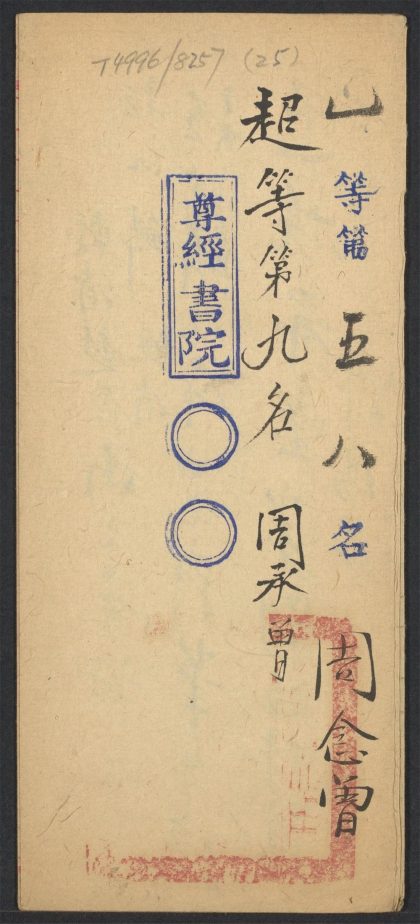 T4996/8257 (25)
等第五八名 周念曾
超等第九名 周承曾
尊經書院